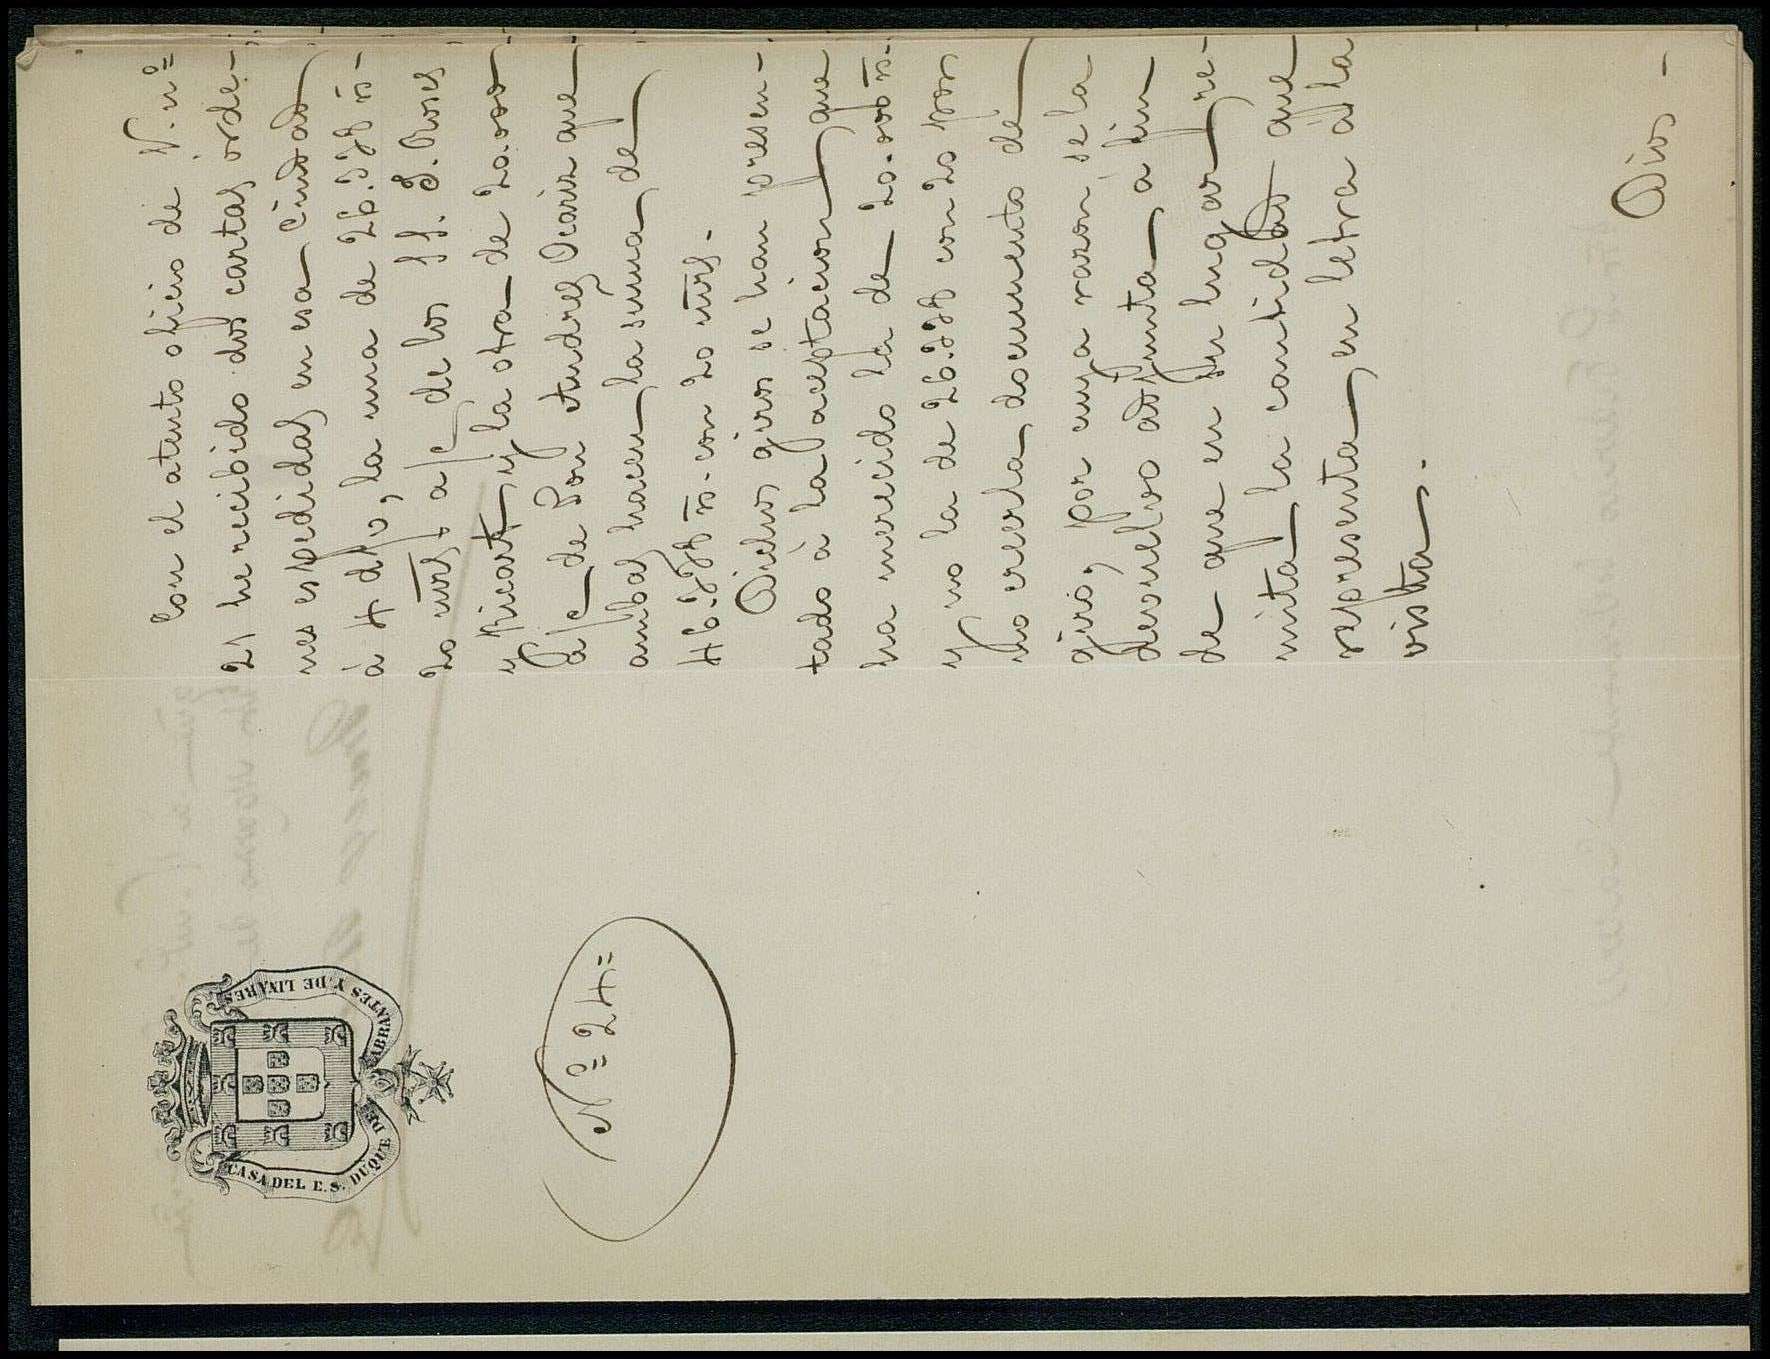 CASA DEL E. S. DUQUE DE ABRANTES Y DE LINARES
Nº 24
Con el atento oficio de V. nº
21 he recibido dos cartas órde-
nes espedidas en esa Ciudad
à 4 d/v, la una de
20 mrs, a/c de los SS. S. Roses
y Ricart y la otra de 20.000
a/c de Don Andres Ocariz que
ambas hacen la suma de
con 20 mrs.
Dichos giros se han presen-
tado à la aceptacion que
ha merecido la de 20.000 rs.
y no la de con 20 por
no creerla documento de
giro, por cuya razon se la
devuelvo adjunta à fin
de que en su lugar re-
mita la cantidad que
representa en letra à la
vista.
Dios -